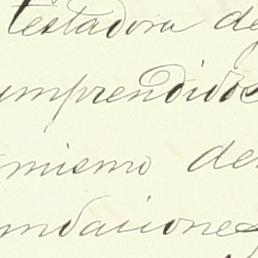 testadora de
omprendidos
mismo de
undaciones